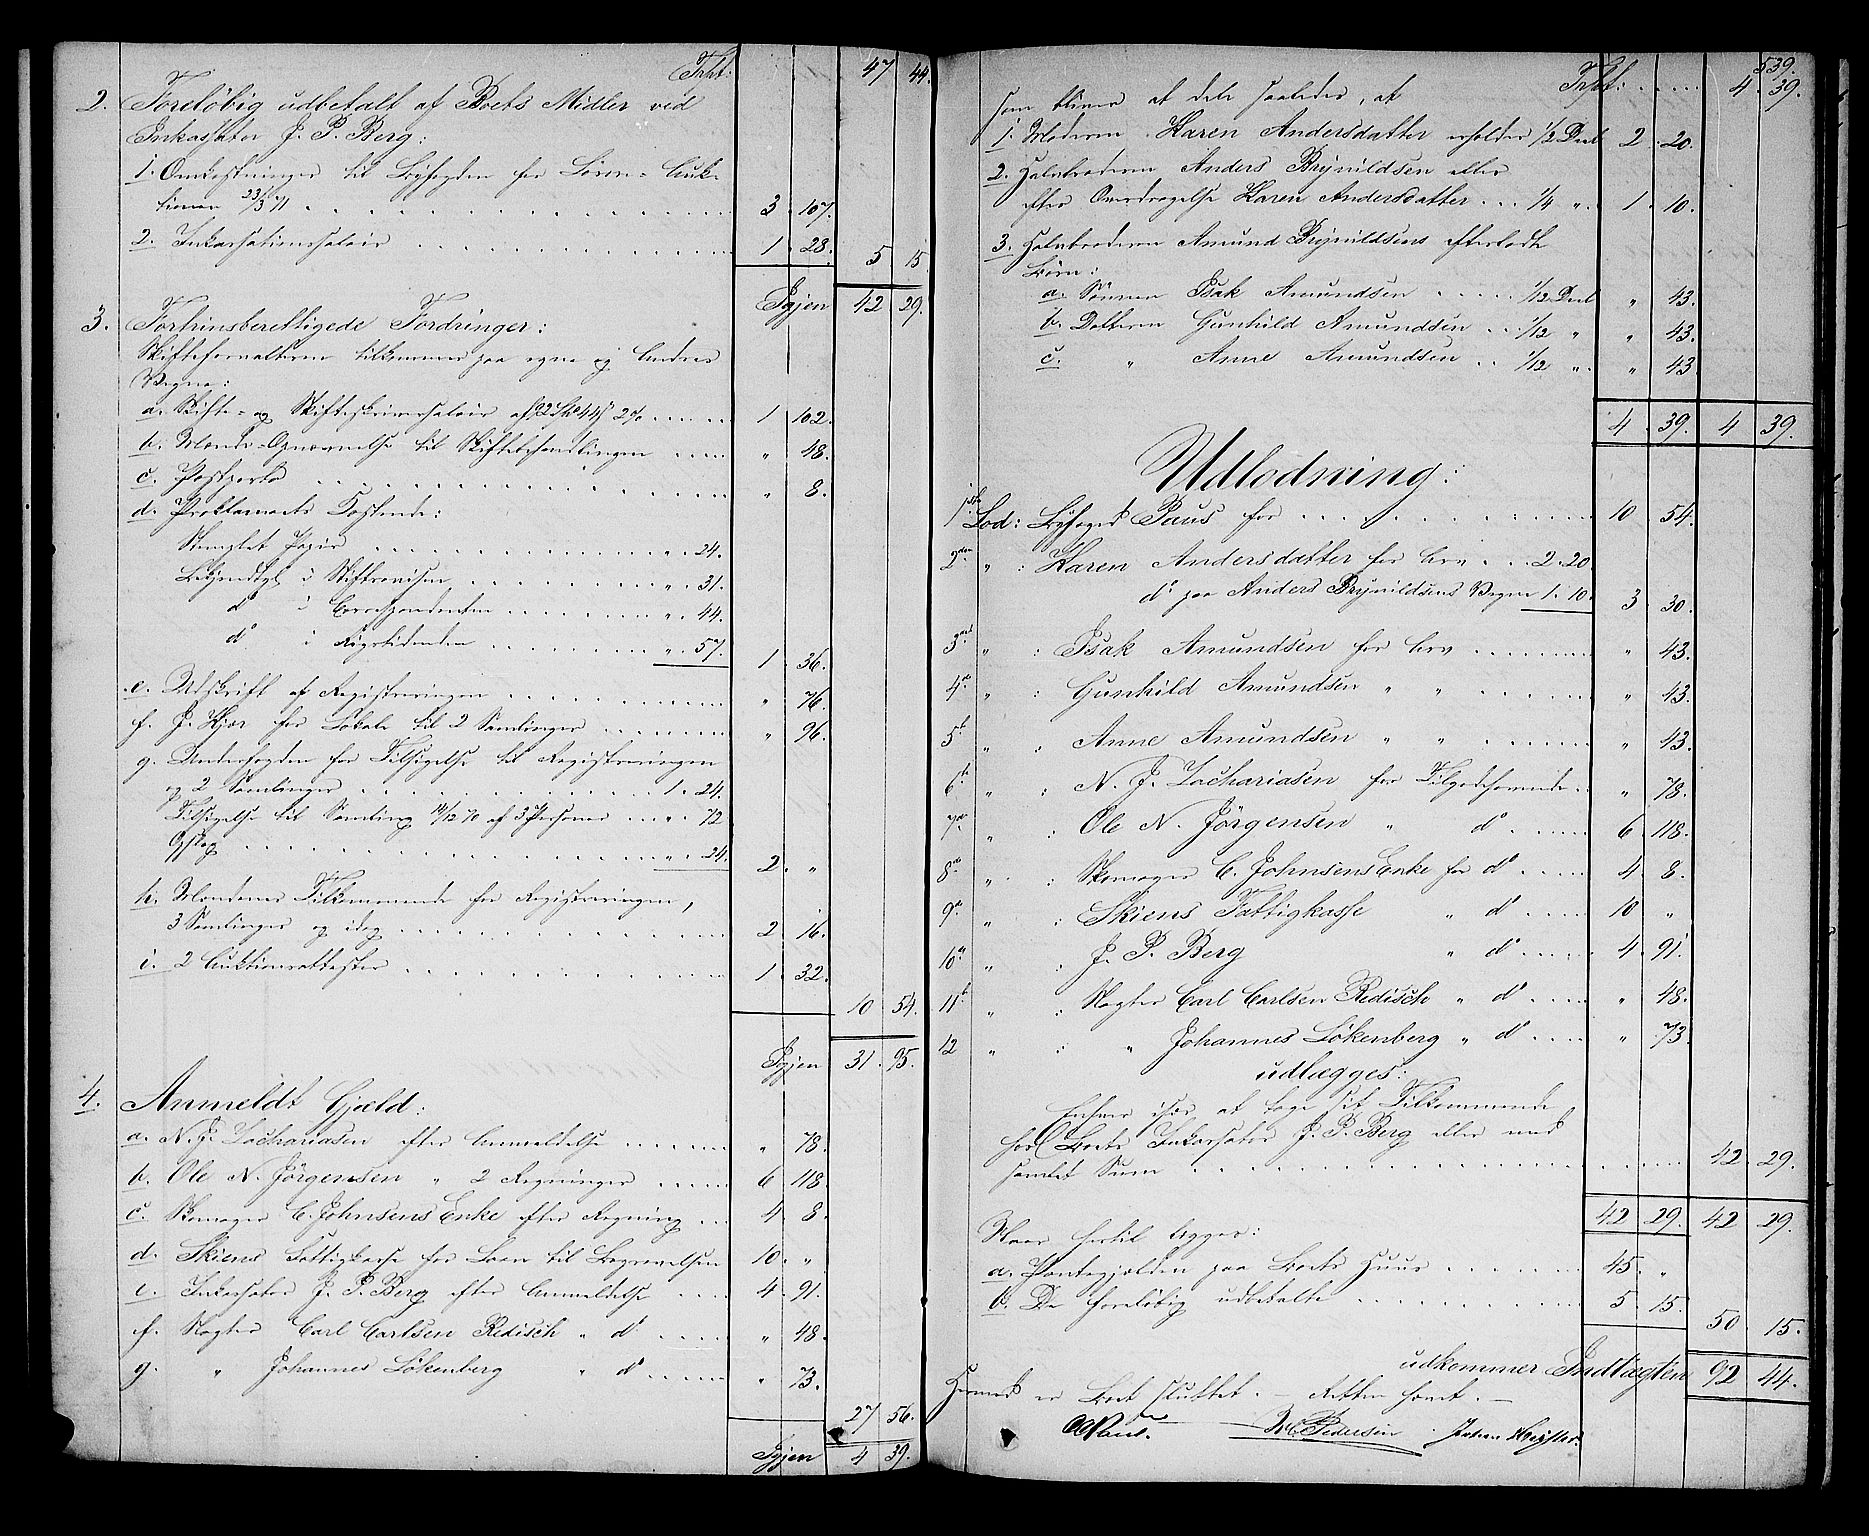 Trspt: 47 44.
2. Foreløbig udbetalt af Boets Midler ved
Inkassator J. P. Berg:
1. Omkostninger til Byfogden for Løsøre-Auk-
tionen 23/3 71 . . . 3 107.
2. Inkassationssalair . . . 1 28. 5 15.
Igjen 42 29.
3. Fortrinsberettigede Fordringer:
Skifteforvalteren tilkommer paa egne og Andres
Vegne:
a. Skifte- og Skifteskriversalair af 92 Spd 44 s 2% . . . 1 102.
b. Mænds-Opnævnelse til Skiftebehandlingen . . . " 48.
c. Postporto . . . " 8.
d. Proklamaets Kostende:
Stemplet Papir . . . " 24.
Bekjendtgj. i Skiftsavisen . . . " 31.
do i Correspondenten . . . " 44.
do i Rigstidenden . . . " 57. 1 36.
e. Udskrift af Registreringen . . . " 76.
f. J. Hjor for Lokale til 2 Samlinger . . . " 96.
g. Underfogden for Tilsigelse til Registreringen
og 2 Samlinger . . . 1. 24.
Tilsigelse til Samling 14/12 70 af 3 Personer . . . " 72
Opslag . . . " 24. 2 "
h. Mændenes Tilkommende for Registreringen,
3 Samlinger og idag . . . 2 16.
i. 2 Auktionsattester . . . 1 32.
10 54.
Igjen 31 95.
4. Anmeldt Gjæld:
a. N. J. Zachariasen efter Anmeldelse . . . " 78.
b. Ole N. Jörgensen " 2 Regninger . . . 6 118.
c. Skomager C. Johnsens Enke efter Regning . . . 4 8.
d. Skiens Fattigkasse for Laan til Begravelsen 10 "
e. Inkassator J. P. Berg efter Anmeldelse . . . 4 91.
f. Vægter Carl Carlsen Redisch " do . . . " 48.
g. " Johannes Lökenberg " do . . . " 73.
27 56.
Igjen 4 39.
539.
Trspt: . . . 4 39.
som bliver at dele saaledes, at
1. Moderen Karen Andersdatter erholder 1/2 Deel 2 20.
2. Halvbroderen Anders Brynildsen eller
efter Overdragelse Karen Andersdatter . . . 1/4 " 1 10.
3. Halvbroderen Amund Brynildsens efterladte
Børn:
a. Sönnen Isak Amundsen . . . 1/12 Deel " 43.
b. Datteren Gunhild Amundsen . . 1/12 " " 43.
c. " Anne Amundsen . . 1/12 " " 43.
4 39. 4 39.
Udlodning:
1ste Lod: Byfoged Paus for . . . 10 54.
2den " : Karen Andersdatter for Arv . . . 2. 20
do paa Anders Brynildsens Vegne 1. 10. 3 30.
3die " : Isak Amundsen for Arv . . . " 43.
4e " : Gunhild Amundsen " " . . . " 43.
5te " : Anne Amundsen " " . . . " 43.
6te " : N. J. Zachariasen for Tilgodehavende . . " 78.
7de " : Ole N. Jörgensen " do . . . 6 118.
8de " : Skomager C. Johnsens Enke for do . . . 4 8.
9de " : Skiens Fattigkasse " do . . . 10 "
10de " : J. P. Berg " do . . . 4 91.
11te " : Vægter Carl Carlsen Redisch " do . . . " 48.
12 " : " Johannes Lökenberg " do . . . " 73.
udlægges:
Enhver især at tage sit Tilkommende
hos Boets Inkassator J. P. Berg eller med
samlet Sum . . . 42 29.
42 29. 42 29.
Naar hertil lægges:
a. Pantegjælden paa Boets Huus . . . 45 "
b. De foreløbig udbetalte . . . 5 15.
50 15.
udkommer Indtægten 92 44.
Hermed er Boet sluttet. — Retten hævet. —
Paus. Pedersen